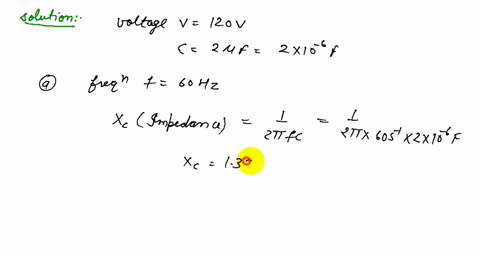 solution:-
voltage V = 120V
C = 2 μF = 2×10⁻⁶ F
ⓐ freqⁿ f = 60 Hz
Xc (Impedance) = 1/2πfC = 1/2π× 60s⁻¹ ×2×10⁻⁶ F
Xc = 1.3